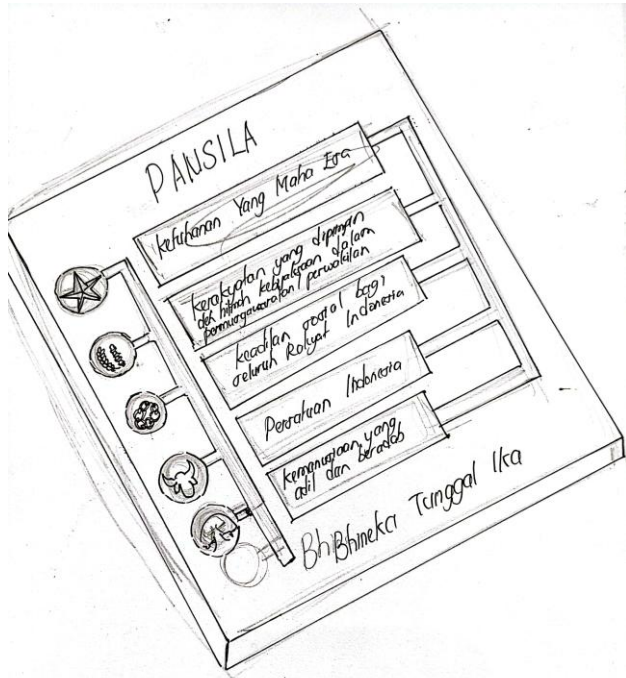 PANSILA
Ketuhanan Yang Maha Esa
kerakyatan yang dipimpin
oleh hikmah kebijaksaan dalam
permusyawaratan / perwakilan
keadilan sosial bagi
seluruh Rakyat Indonesia
Persatuan Indonesia
kemanusiaan yang
adil dan beradab
Bh Bhineka Tunggal Ika